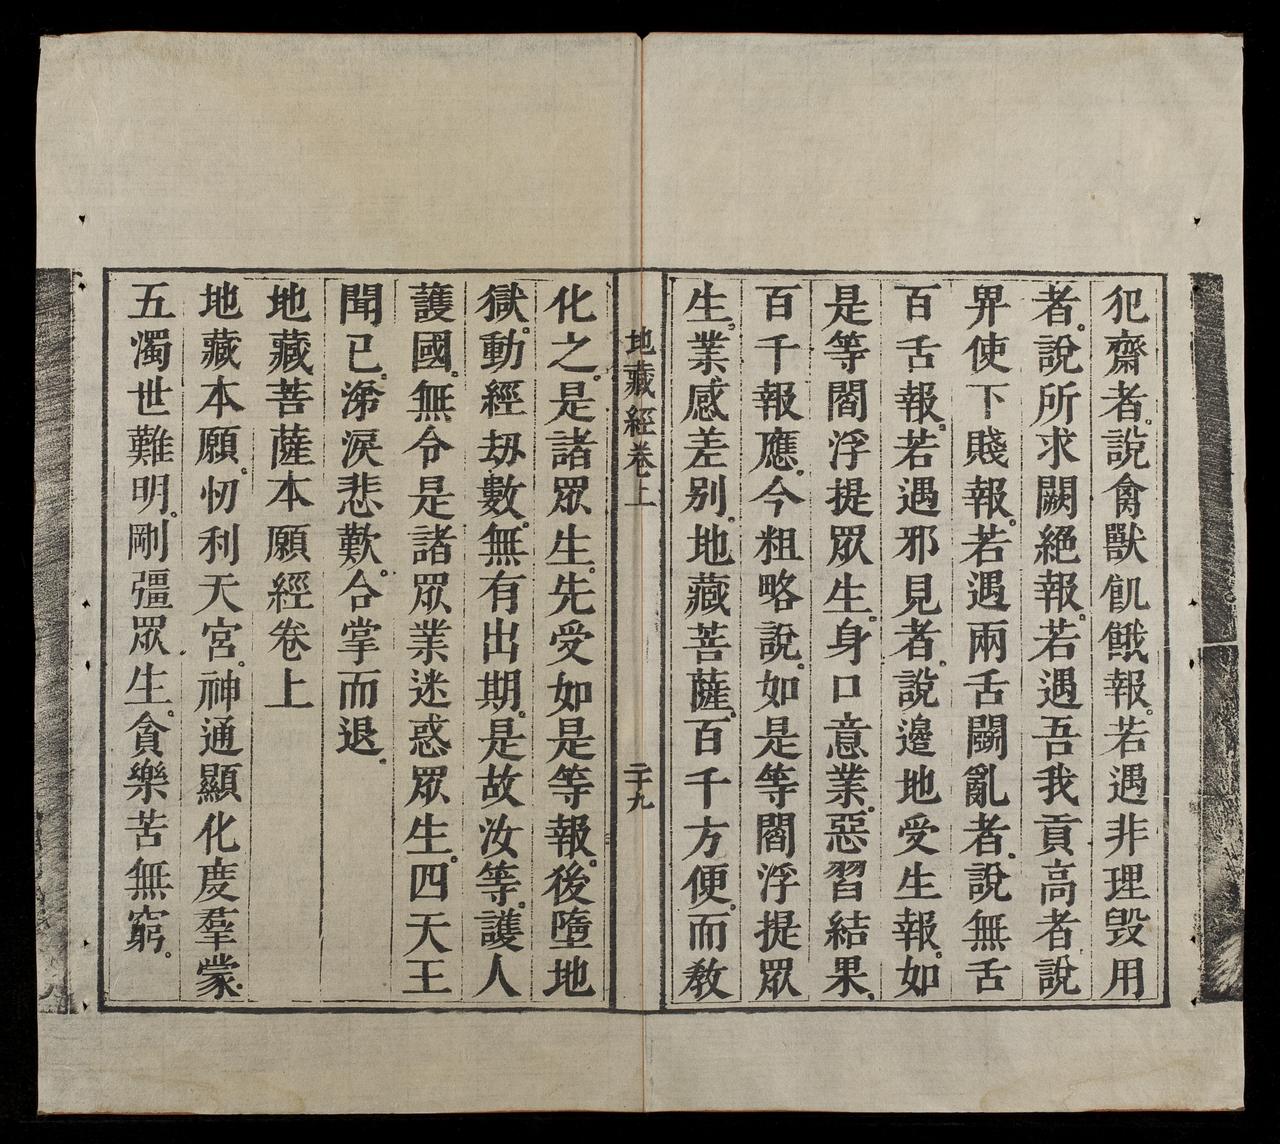 犯齋者。說禽獸飢餓報。若遇非理毀用
者。說所求闕絕報。若遇吾我貢高者說
界使下賤報。若遇兩舌鬭亂者。說無舌
百舌報。若遇邪見者。說邊地受生報。如
是等閻浮提眾生。身口意業。惡習結果。
百千報應。今粗略說。如是等閻浮提眾
生。業感差別。地藏菩薩。百千方便。而教
地藏經卷上
二十九
化之。是諸眾生。先受如是等報。後墮地
獄。動經劫數。無有出期。是故汝等。護人
護國。無令是諸眾業迷惑眾生。四天王
聞已。涕淚悲歎。合掌而退。
地藏菩薩本願經卷上
地藏本願。忉利天宮。神通顯化度羣蒙。
五濁世難明。剛彊眾生。貪樂苦無窮。